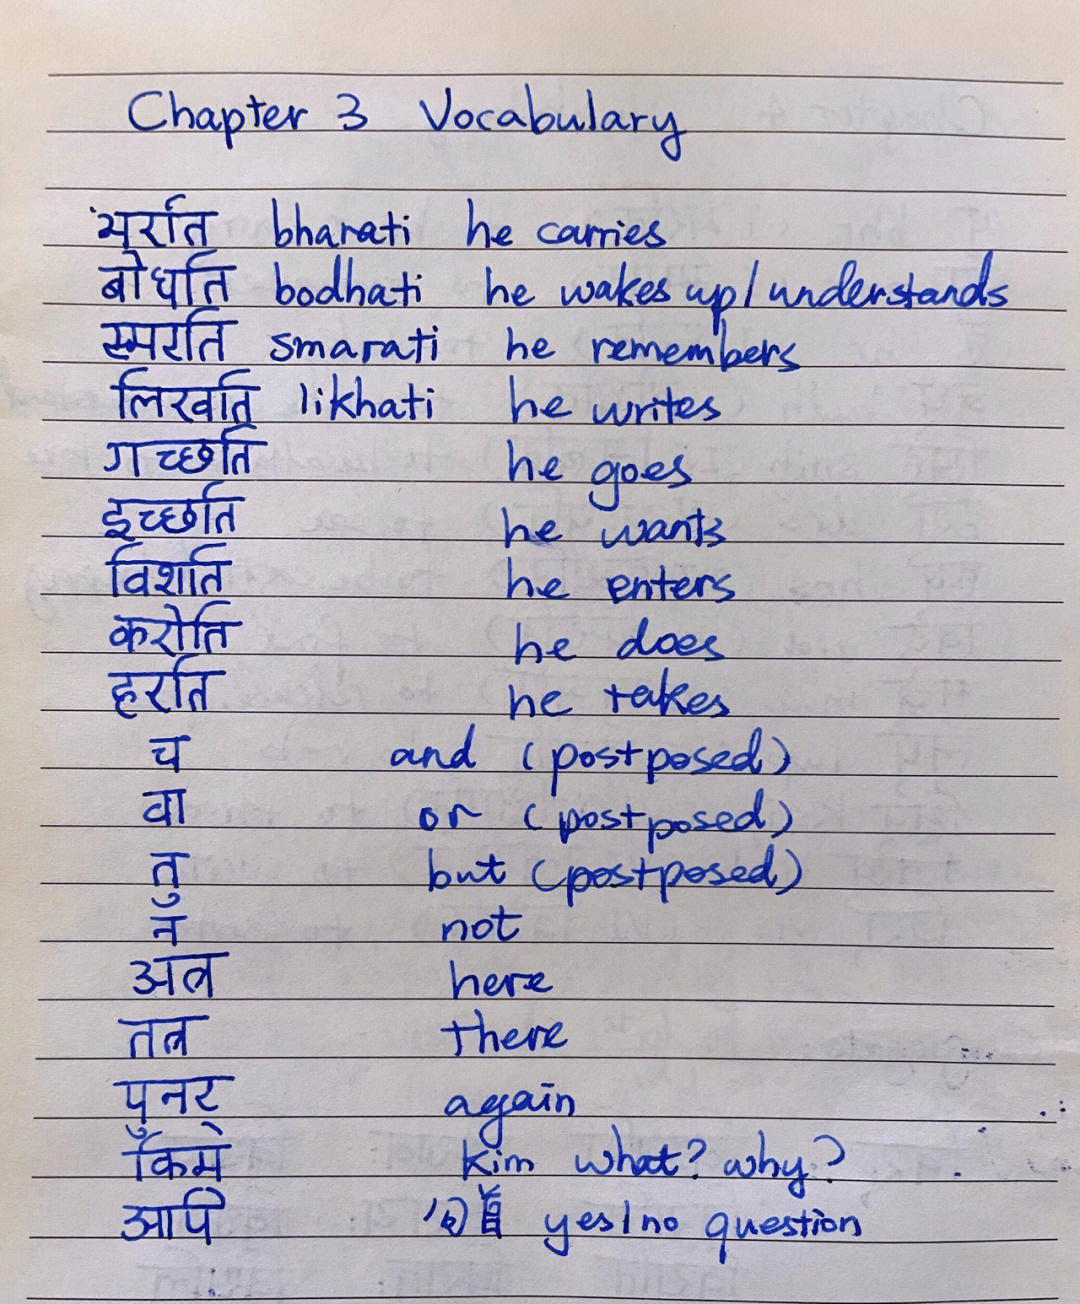 Chapter 3 Vocabulary
भरति bharati he carries
बोधति bodhati he wakes up/understands
स्मरति smarati he remembers
लिखति likhati he writes
गच्छति he goes
इच्छति he wants
विशति he enters
करोति he does
हरति he takes
च and (postposed)
वा or (postposed)
तु but (postposed)
न not
अत्र here
तत्र there
पुनर again
किम् kim what? why?
अपि yes/no question